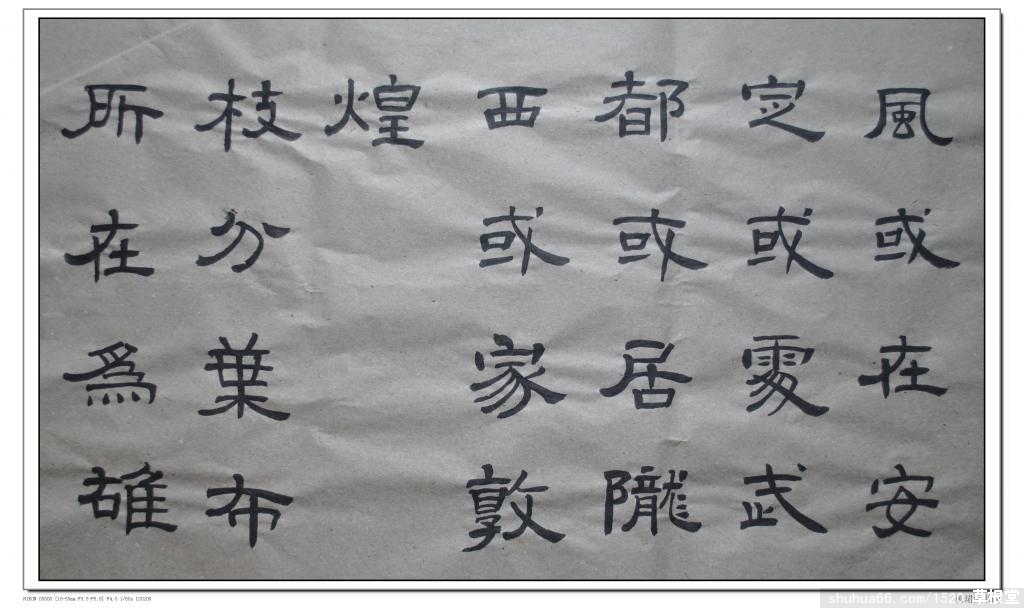 風或在安
定或處武
都或居隴
西或家敦
煌
枝分葉布
所在為雄
shuhua66.com/1520
草根堂